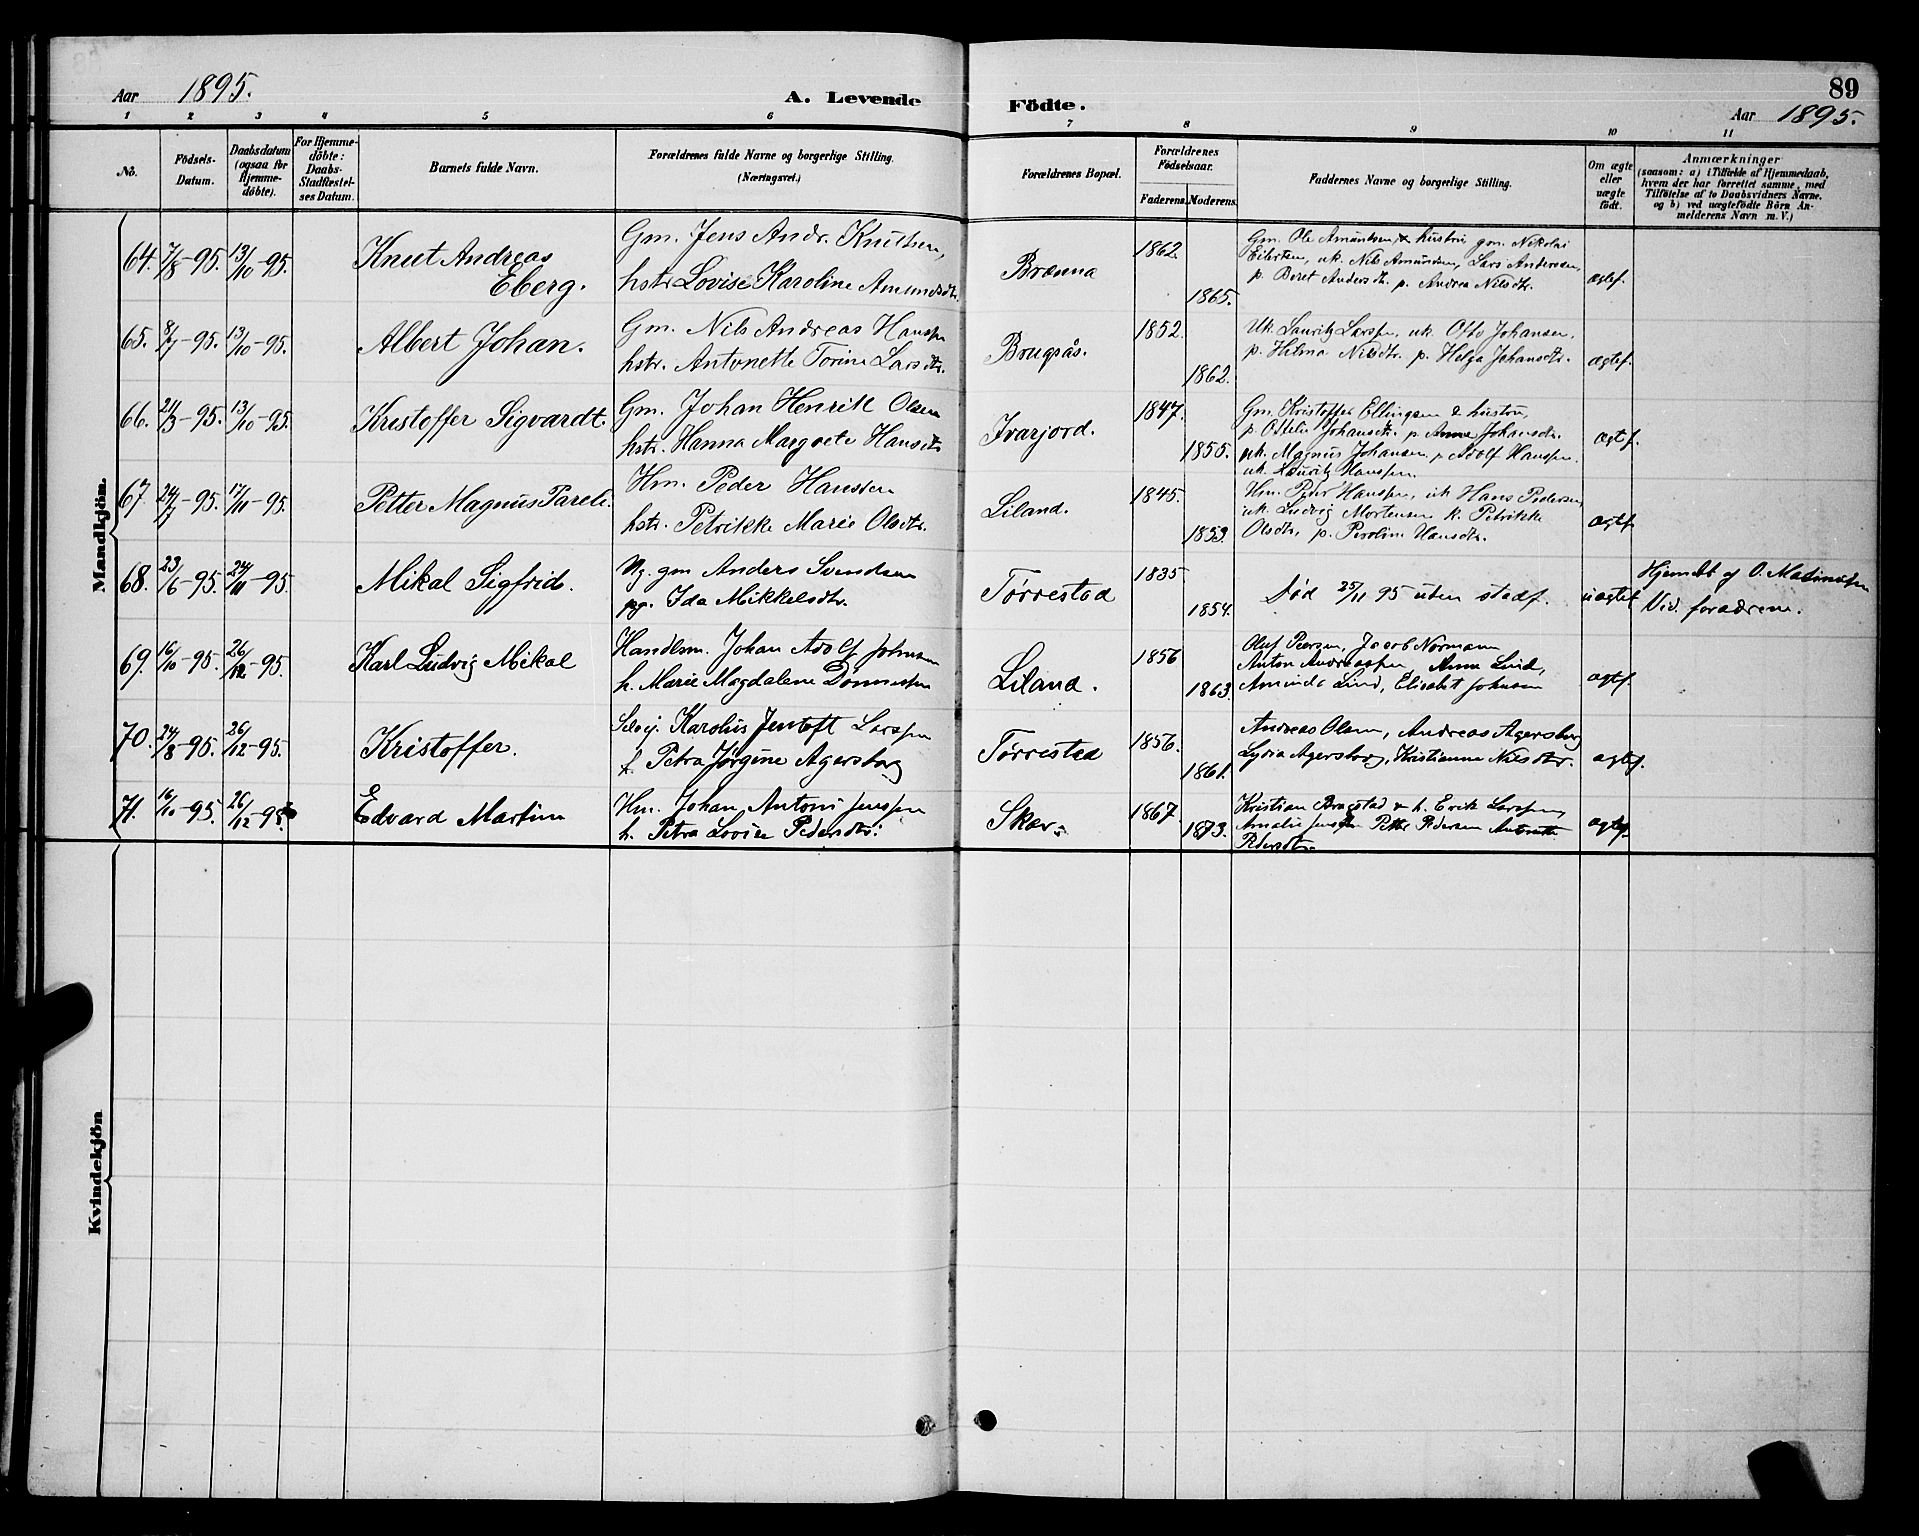 Aar 1895.
A. Levende
Födte.
89
Aar 1895.
1 2 3 4 5 6 7 8 9 10 11
No.
Födsels-
Datum.
Daabsdatum
(ogsaa for
Hjemme-
döbte).
For Hjemme-
döbte:
Daabs-
Stadfæstel-
ses Datum.
Barnets fulde Navn.
Forældrenes fulde Navne og borgerlige Stilling.
(Næringsvei.)
Forældrenes Bopæl.
Forældrenes
Födselsaar.
Faderens. Moderens.
Faddernes Navne og borgerlige Stilling.
Om ægte
eller
uægte
födt.
Anmærkninger
(saasom: a) i Tilfælde af Hjemmedaab,
hvem der har forrettet samme, med
Tilföielse af to Daabsvidners Navne,
og b) ved uægtefödte Börn An-
melderens Navn m. V.)
Mandkjön.
64. 7/8-95. 13/10-95. Knut Andreas
Eberg.
Gm. Jens Andr. Knutsen,
hstr. Lovise Karoline Amundsdtr.
Brænna
1862.
1865.
Gm. Ole Amundsen & hustru gm. Nikolai
Eilertsen, uk. Nils Amundsen, Lars Andersen,
p. Beret Andersdtr. p. Andrea Nilsdtr.
ægtef.
65. 8/7-95. 13/10-95. Albert Johan.
Gm. Nils Andreas Hanssen
hstr. Antonette Torine Larsdtr.
Brugsås.
1852.
1862.
Uk. Lauritz Larssen, uk. Otto Johansen,
p. Hilma Nilsdtr. p. Helga Johansdtr.
ægtef.
66. 13/10-95. Kristoffer Sigvardt.
Gm. Johan Henrik Olsen
hstr. Hanna Margrete Hansdtr.
Ivarjord.
1847.
1855.
Gm. Kristoffer Ellingsen & hustru,
p. Ottelie Johansdtr. p. Anna Johansdtr.
uk. Magnus Johansen, Adolf Hanssen.
uk. Lauritz Hanssen.
ægtef.
67. 24/7-95. 17/11-95. Petter Magnus Pareli.
Hm. Peder Hanssen
hstr. Petrikke Marie Olsdtr.
Liland.
1845.
1853.
Hm. Peder Hanssen, uk. Hans Pedersen,
uk. Ludvig Mortensen k. Petrikke
Olsdtr. p. Peroline Hansdtr.
ægtef.
68. 23/6-95. 24/11-95. Mikal Sigfrid.
Ug. gm Anders Svendsen
pg. Ida Mikkelsdtr.
Tørrestad
1835
1854.
Død 25/11 95 uden stadf.
uægtef
Hjemdbt af O. Madinussen
Vid. forældrene.
69. 16/10-95. 26/12-95. Karl Ludvig Mikal
Handlsm. Johan Adolf Johnsen
h. Marie Magdalene Dønnessen
Liland.
1856
1863.
Oluf Peersen, Jacob Normann
Anton Andreassen, Anna Lind,
Aminda Lind, Elisabet Johnsen
ægtef.
70. 24/8-95. 26/12-95. Kristoffer.
Selvej. Karolus Jentoft Larssen
f. Petra Jørgine Agersborg
Tørrestad
1856.
1861.
Andreas Olsen, Andreas Agersborg
Lydia Agersborg, Kristianna Nilsdtr.
ægtef.
71. 16/10-95. 26/12-95. Edvard Martin
Hm. Johan Antoni Jenssen
h. Petra Lovise Pedersdtr.
Skar.
1867.
1873.
Kristian Bragstad & h. Erik Larssen,
Amalie Jenssen Petter Pedersen
Pedersdtr.
ægtef.
Kvindekjön